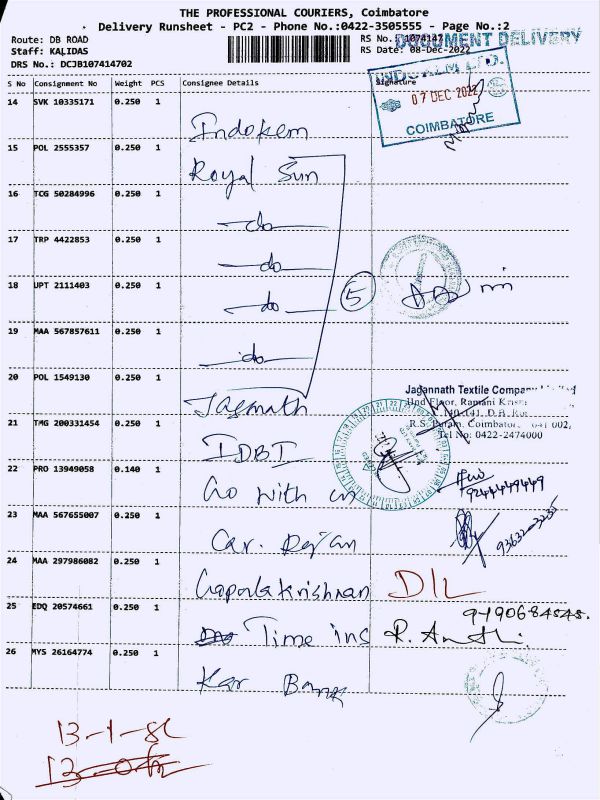 THE PROFESSIONAL COURIERS, Coimbatore
Delivery Runsheet - PC2 - Phone No.:0422-3505555 - Page No.:2
Route: DB ROAD
Staff: KALIDAS
DRS No.: DCJB107414702
RS No.: 1074147
RS Date: 08-Dec-2022
DOCUMENT DELIVERY
S No Consignment No Weight PCS Consignee Details Signature
INDOKEM LTD.
07 DEC 2022
COIMBATORE
14 SVK 10335171 0.250 1 Indokem
15 POL 2555357 0.250 1 Royal Sun
16 TCG 50284996 0.250 1 do
17 TRP 4422853 0.250 1 do
18 UPT 2111403 0.250 1 do 5
19 MAA 567857611 0.250 1 do
20 POL 1549130 0.250 1 Jagnath
Jagannath Textile Company Limited
IInd Floor, Ramani
140-141, D.B.
R.S. Puram, Coimbatore 641 002,
Tel No: 0422-2474000
21 TMG 200331454 0.250 1 IDBI
22 PRO 13949058 0.140 1 Go with
9244449449
23 MAA 567655007 0.250 1 Car.
24 MAA 297986082 0.250 1 Gopalakrishnan D/L
25 EDQ 20574661 0.250 1 Time ins
26 MYS 26164774 0.250 1 Kar Bank
13-1-